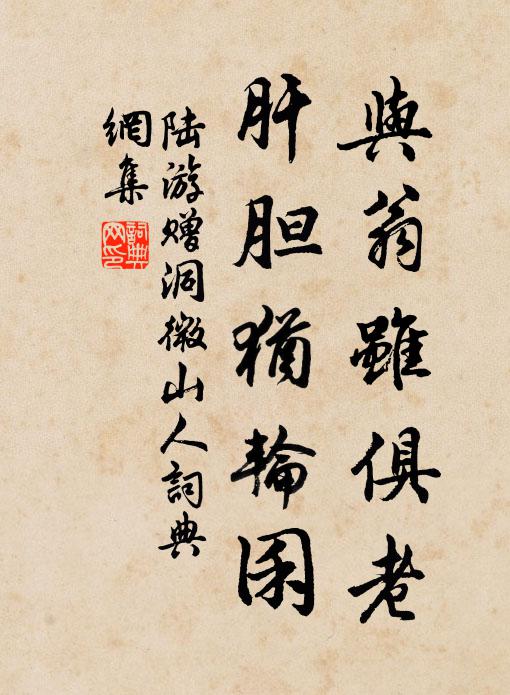 與翁雖俱老
肝胆猶輪囷
陆游赠洞微山人詞典
網集
詞典网印